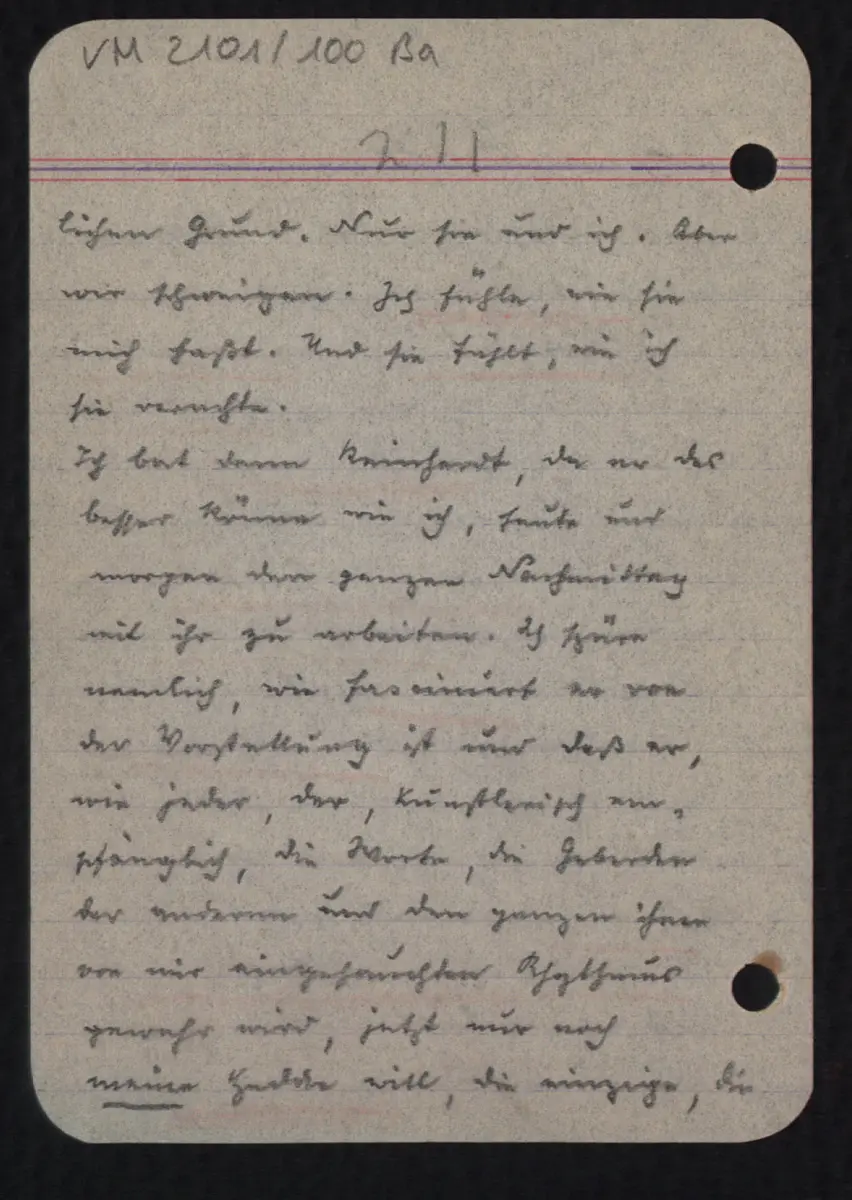 VM 2101/100 Ba
211
lichen Grund. Nur sie und ich. Aber
wir schweigen. Ich fühle, wie sie
mich haßt. Und sie fühlt, wie ich
sie verachte.
Ich bat dann Reinhardt, da er das
besser könne wie ich, heute und
morgen den ganzen Nachmittag
mit ihr zu arbeiten. Ich spüre
nemlich, wie fasciniert er von
der Vorstellung ist und daß er,
wie jeder, der, künstlerisch em-
pfänglich, die Worte, die Geberden
der anderen und den ganzen ihnen
von mir eingehauchten Rhythmus
gewahr wird, jetzt nur noch
meine Hedda will, die einzige, die